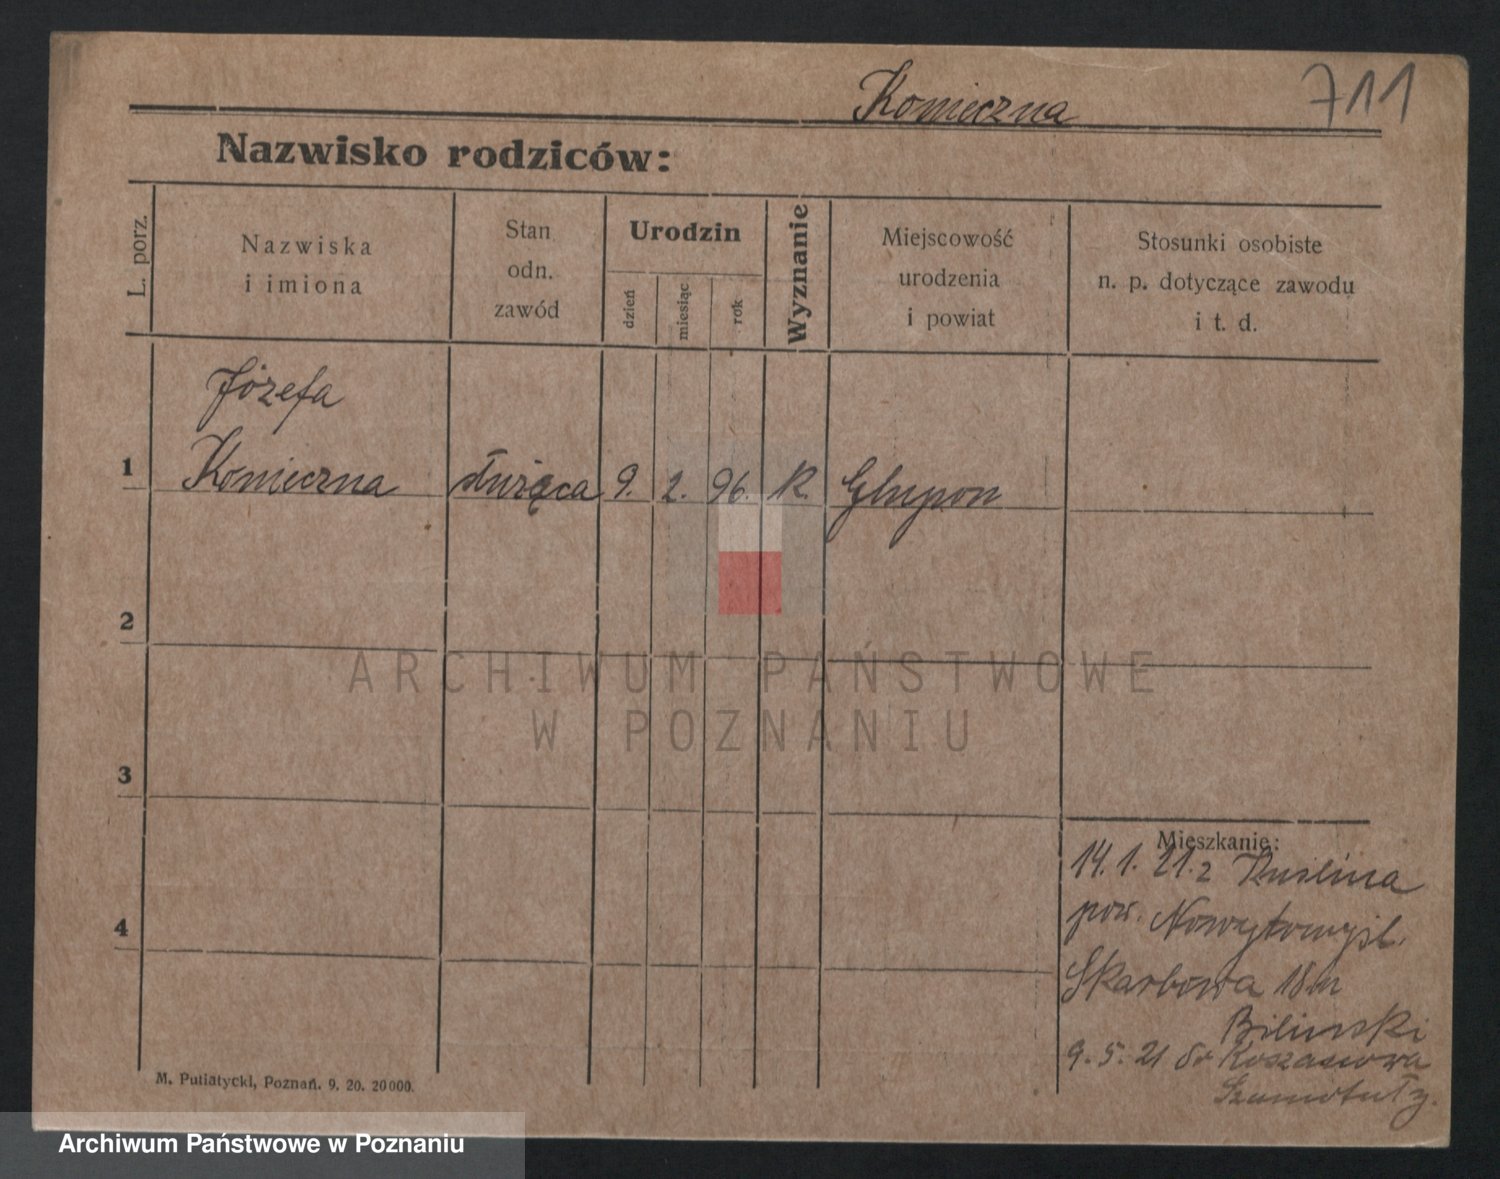 Konieczna 711
Nazwisko rodziców:
L. porz.
Nazwiska
i imiona
Stan
odn.
zawód
Urodzin
dzień
miesiąc
rok
Wyznanie
Miejscowość
urodzenia
i powiat
Stosunki osobiste
n. p. dotyczące zawodu
i t. d.
Józefa
1 Konieczna służąca 9. 2. 96. K. Głupon
2
3
4
ARCHIWUM PAŃSTWOWE
W POZNANIU
Mieszkanie:
14. 1. 21. z Kuślina
pow. Nowytomyśl.
Skarbowa 18
Bilinski
9. 5. 21 do
Szamotuły.
M. Putiatycki, Poznań. 9. 20. 20000.
Archiwum Państwowe w Poznaniu